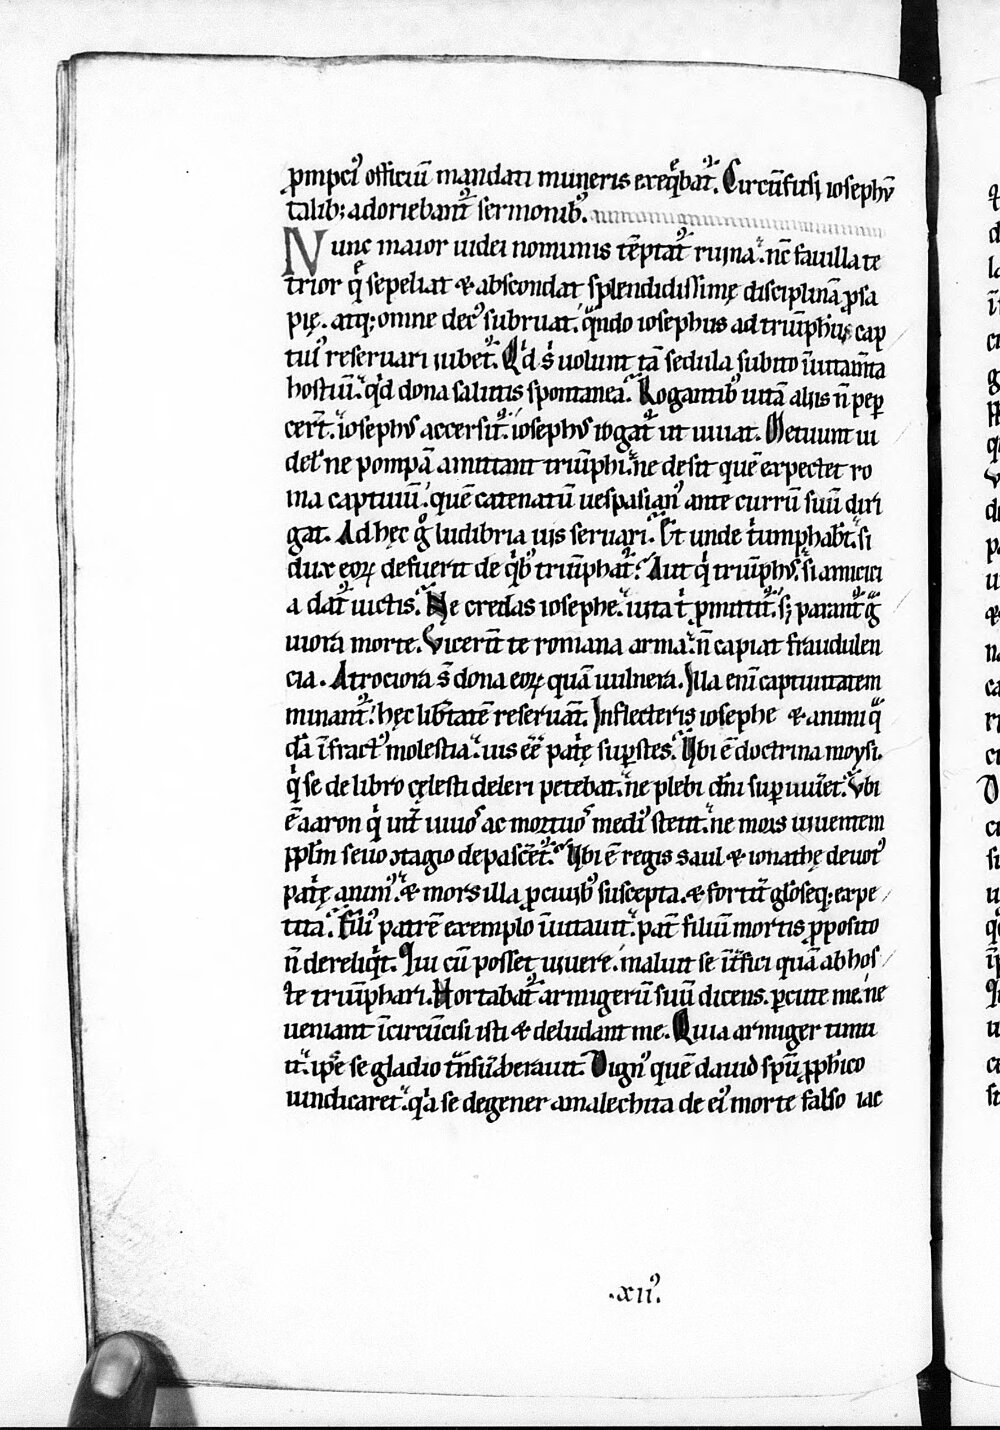 ꝓmpci᷒ officiū mandati muneris exeq̄bat᷒. Circūfusi ioseph᷒
talib; adoriebant᷒ sermonib᷒.
Nunc maior iudei nominis tēptat᷒ ruina. nc̄ fauilla te
trior q̄ sepeliat & abscondat splendidissimę disciplinā ꝓsa
pię. atq; omne dec᷒ subruat. qn̄do iosephus ad triūphū cap
tiu᷒ reseruari iubet᷒. Qͥd s̓ uolunt tā sedula subito īuitam̄ta
hostiū. qͥd dona salutis spontanea. Rogantib᷒ uitā aliis n̄ peꝑ
cer̄t. ioseph᷒ accersit᷒. ioseph᷒ rogat᷒ ut uiuat. Metuunt ui
delꝫ ne pompā amittant triūphi. ne desit quē expectet ro
ma captiuū. quē catenatū uespasian᷒ ante currū suū diri
gat. Ad hęc g̊ ludibria uis seruari. Et unde tͥumphabt̄. si
dux eoꝝ defuerit de qͥb᷒ triūphat᷒. Aut qͥ triūph᷒. si amicici
a dat᷒ uictis. Ne credas iosephe. uita tͥ ꝓmittit᷒. sꝫ parant᷒ gͣ
uiora morte. Vicerūt te romana arma. n̄ capiat fraudulen
cia. Atrociora s̄ dona eoꝝ quā uulnera. Illa enī captiuitatem
minant᷒. hęc lib̄tatē reseruāt. Inflecteris iosephe & animi qͣ
dā īfract᷒ molestia. uis eē patͥę suꝑstes. Ubi ē doctrina moysi.
qͥ se de libro cęlesti deleri petebat. ne plebi dn̄i suꝑuiuer̄et. Vbi
ē aaron qͥ int̄ uiuos ac mortuos medi᷒ stetit. ne mors uiuentem
ꝓplm̄ seuo ↄtagio depascet᷒. Ubi ē regis saul & ionathę deuot᷒
patͥę anim᷒. & mors illa ꝓ ciuib᷒ suscepta. & fortit̄ glose q; expe
tita. Fili᷒ patrē exemplo īuitauit. pat̄ filiū mortis ꝓposito
n̄ dereliqͥt. Qui cū posset uiuere. maluit se int̄fici quā ab hos
te triūphari. Hortabat᷒ armigerū suū dicens. ꝑcute me. ne
ueniant īcircūcisi isti & deludant me. Quia armiger timu
it. ip̄e se gladio tn̄suerberauit. Dign᷒ quē dauid spū ꝓph̄ico
uindicaret. qͣ se degener amalechita de ei᷒ morte falso iac
.xii᷒.